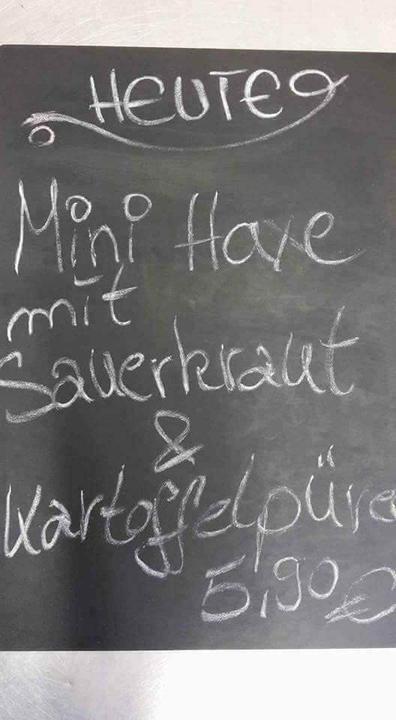 HEUTE
Mini Haxe
mit
Sauerkraut
&
Kartoffelpüre
5,90 €